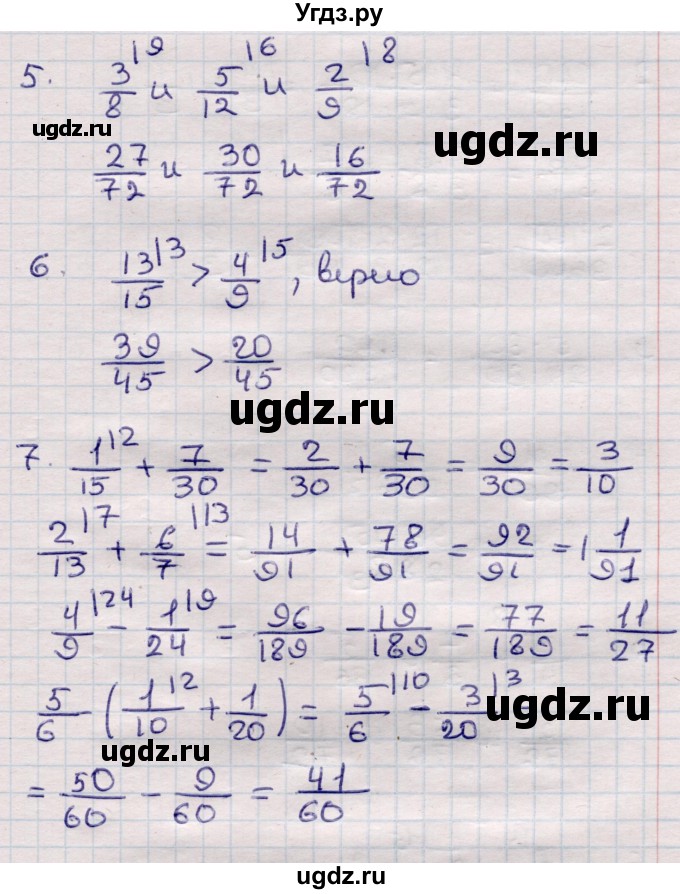 Угдз.ру
5. 3/8 |9 и 5/12 |6 и 2/9 |8
ugdz.ru ugdz.ru
27/72 и 30/72 и 16/72
6. 13/15 |3 > 4/9 |5, верно
39/45 > 20/45
ugdz.ru
7. 1/15 |2 + 7/30 = 2/30 + 7/30 = 9/30 = 3/10
2/13 |7 + 6/7 |13 = 14/91 + 78/91 = 92/91 = 1 1/91
4/9 |24 - 1/24 |9 = 96/189 - 19/189 = 77/189 = 11/27
5/6 - (1/10 |2 + 1/20) = 5/6 |10 - 3/20 |3 =
ugdz.ru
ugdz.ru
= 50/60 - 9/60 = 41/60
ugdz.ru